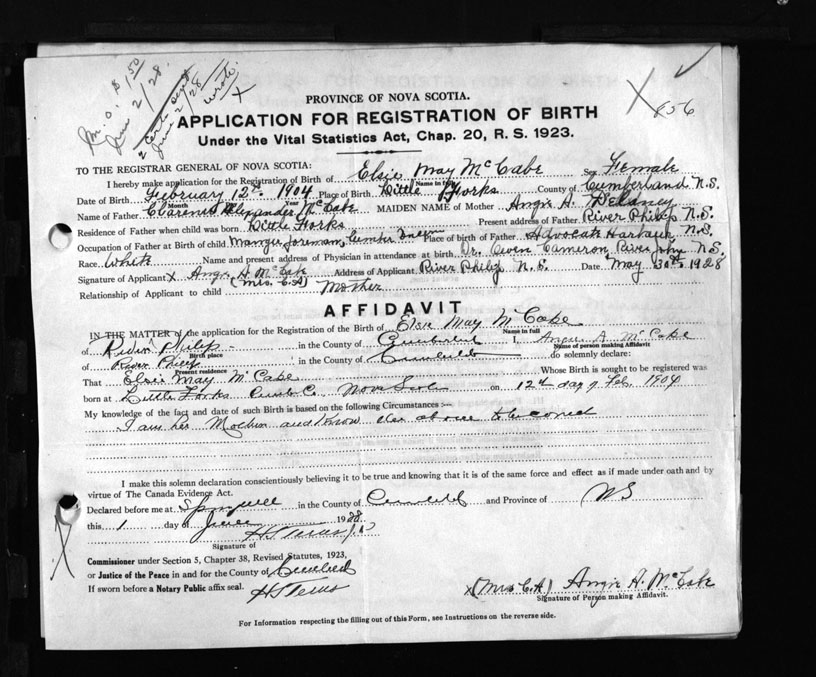 M.O. $1.50
June 2/28.
2 certs sent
June 2/28
wrote.
X
X 856
PROVINCE OF NOVA SCOTIA.
APPLICATION FOR REGISTRATION OF BIRTH
Under the Vital Statistics Act, Chap. 20, R. S. 1923.
TO THE REGISTRAR GENERAL OF NOVA SCOTIA:
I hereby make application for the Registration of Birth of Elsie May McCabe Sex Female
Name in full
Date of Birth February 12th 1904 Place of Birth Little Forks County of Cumberland N.S.
Month Year
Name of Father Clarence Alexander McCabe MAIDEN NAME of Mother Angie A. Delaney
Residence of Father when child was born Little Forks Present address of Father River Philip N.S.
Occupation of Father at Birth of child Foreman, Place of birth of Father Advocate Harbour, N.S.
Race White Name and present address of Physician in attendance at birth Dr. Cameron, River N.S.
Signature of Applicant X Angie A McCabe Address of Applicant River Philip N.S. Date May 30th 1928
(Mrs. C.A)
Relationship of Applicant to child Mother
AFFIDAVIT
IN THE MATTER of the application for the Registration of the Birth of Elsie May McCabe
Name in full
of River Philip in the County of Cumberland I, Angie A. McCabe
Birth place Name of person making Affidavit
of River Philip in the County of Cumberland do solemnly declare:
Present residence
That Elsie May McCabe Whose Birth is sought to be registered was
born at Little Forks Cumb Co. Nova Scotia on 12th day of Feb. 1904
My knowledge of the fact and date of such Birth is based on the following Circumstances:—
I am her Mother and know the above
I make this solemn declaration conscientiously believing it to be true and knowing that it is of the same force and effect as if made under oath and by
virtue of The Canada Evidence Act.
Declared before me at Springhill in the County of Cumberland and Province of NS
this 1 day of June 1928
Signature of
Commissioner under Section 5, Chapter 38, Revised Statutes, 1923,
or Justice of the Peace in and for the County of Cumberland
If sworn before a Notary Public affix seal.
X (Mrs C.A) Angie A. McCabe
Signature of Person making Affidavit.
For Information respecting the filling out of this Form, see Instructions on the reverse side.